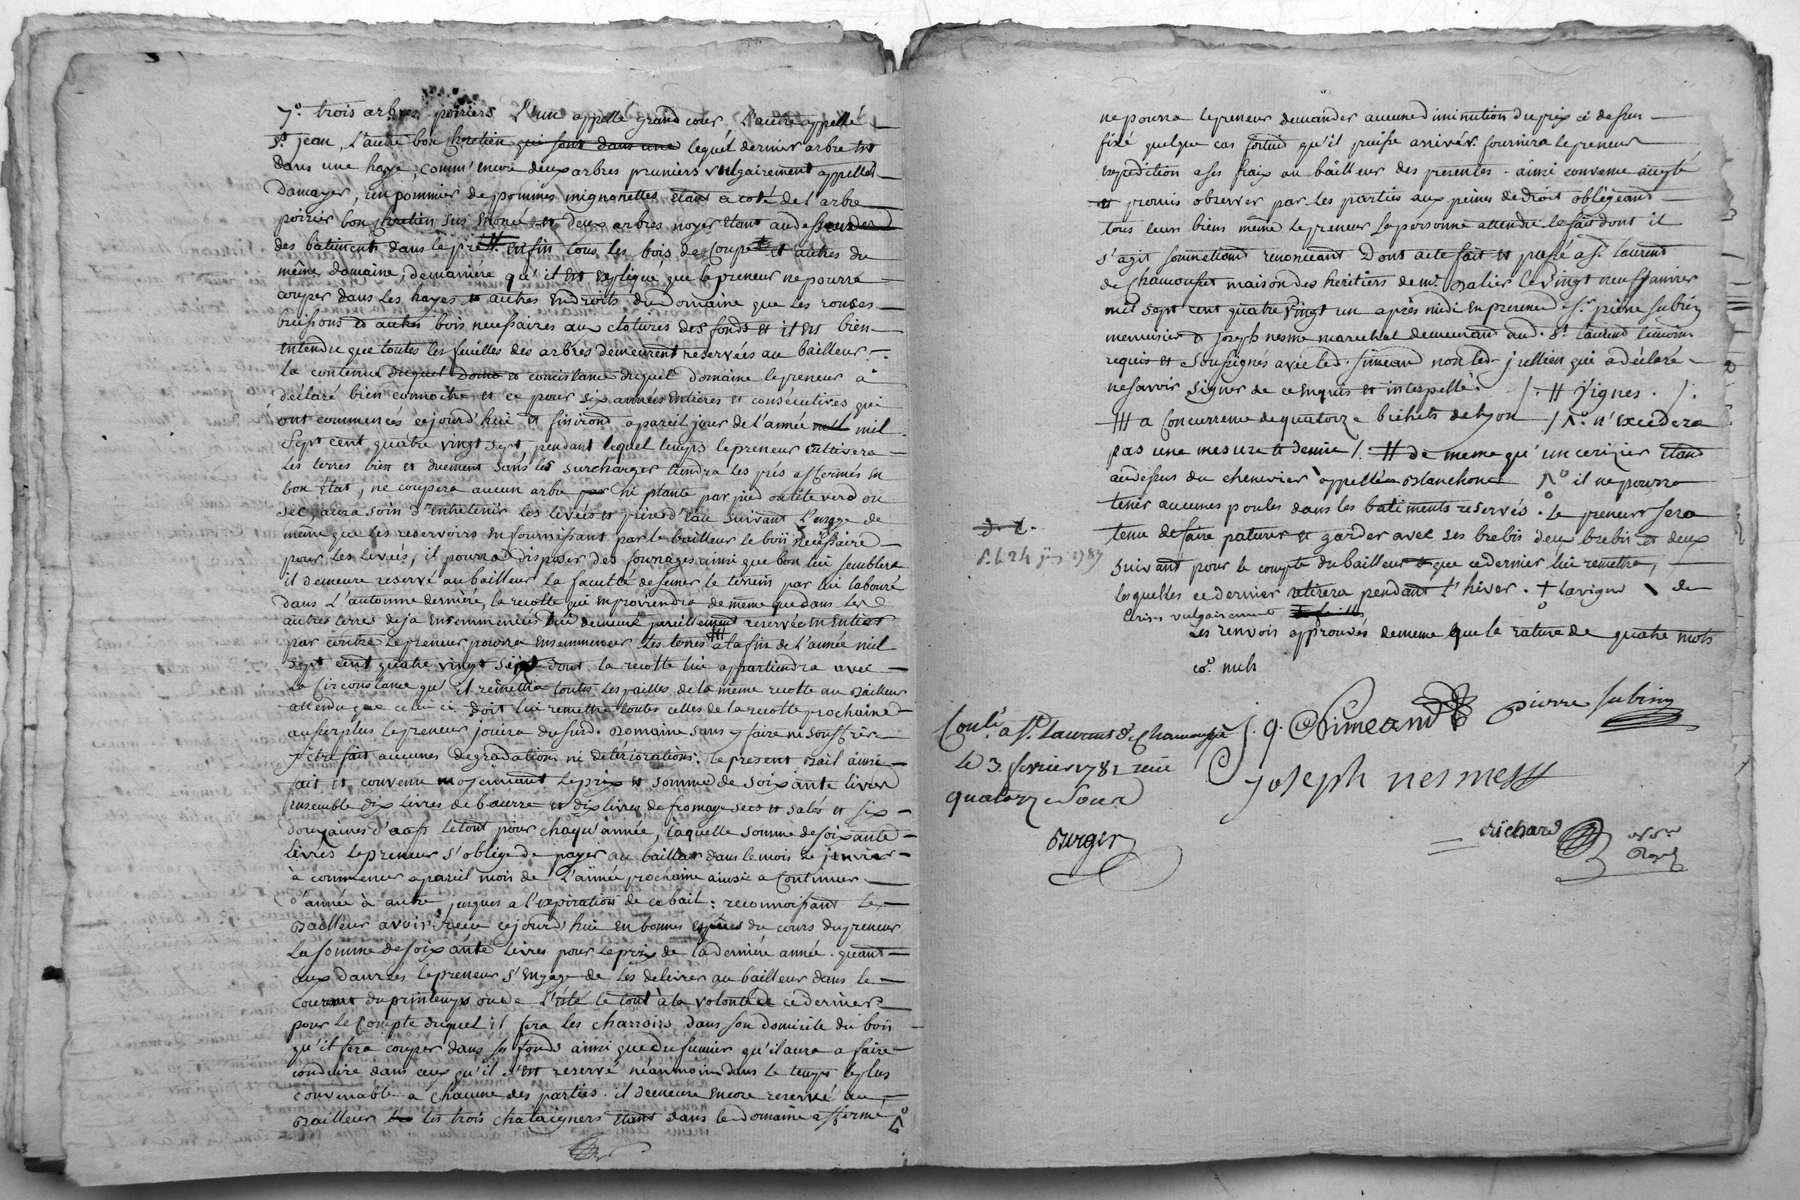 7.° trois arbres poiriers l'un appellé grand cour, l'autre appellé
st. jean, l'autre bon chretien qui sont dans une lequel dernier arbre est
dans une haye, comm'encore deux arbres pruniers vulgairement appellés
Damayer, un pommier de pommes mignonettes etant a coté de l'arbre
poirier bon chretien sus enoncé et deux arbres noyer etant au dessous
des batiments dans le pré # enfin tous les bois de coupe et autres du
même domaine, demaniére qu'il est expliqué que le preneur ne pourra
couper dans les hayes et autres endroits du domaine que les ronces
buissons et autres bois necessaires aux clotures des fonds et il est bien
entendu que toutes les feuilles des arbres demeurent reservées au bailleur
la contenue duquel et consistance duquel domaine le preneur a
déclaré bien connoitre et ce pour six années entieres et consécutives qui
ont commencés cejourd'hui et finiront a pareil jour de l'année mil
sept cent quatre vingt sept, pendant lequel temps le preneur cultivera
les terres bien et duement sans les surcharger tiendra les prés affermés en
bon état, ne coupera aucun arbre par ni plante par pied ou tête verd ou
sec, aura soin d'entretenir les levées et prises d'eau suivant l'usage de
même que les reservoirs en fournissant par le bailleur le bois necessaire
pour les levées, il pourra disposer des fourrages ainsi que bon lui semblera
il demeure reservé au bailleur la faculté de semer le terrein par lui labouré
dans l'automne derniére, la recolte qui en proviendra de même que dans les
autres terres déja ensemmencées lui demeure pareillement reservée en entier
par contre le preneur pourra ensemmencer les terres # a la fin de l'année mil
sept cent quatre vingt sept dont la recolte lui appartiendra avec
la circonstance qu'il remettra toutes les pailles de la même recolte au Bailleur
attendu que celui ci doit lui remettre toutes celles de la recolte prochaine
au surplus le preneur jouira dusd. Domaine sans y faire ni souffrir
y être fait aucunes degradations ni détériorations; le present Bail ainsi
fait et convenu moyennant le prix et somme de soixante livres
ensemble dix livres de beurre et dix livres de fromage secs et salés et six
douzaines d'œufs le tout pour chaqu'année, laquelle somme de soixante
livres le preneur s'oblige de payer au bailleur dans le mois de janvier
à commencer a pareil mois de l'année prochaine ainsi a continuer
d'année à autre jusques a l'expiration de ce bail; reconnoissant le
Bailleur avoir reçu cejourd'hui en bonnes espèces du cours du preneur
la somme de soixante livres pour le prix de la derniére année. quant
aux danrées le preneur s'engage de les delivrer au bailleur dans le
courant du printemps ou de l'été le tout à la volonté de ce dernier
pour le compte duquel il fera les charrois dans son domicile du bois
qu'il fera couper dans ses fonds ainsi que du fumier qu'il aura a faire
conduire dans ceux qu'il s'est reservé néanmoins dans le temps le plus
convenable a chacune des parties. il demeure encore reservé au
Bailleur les trois chataigners etant dans le domaine affermé
ne pourra le preneur demander aucune diminution du prix ci dessus
fixé quelque cas fortuit qu'il puisse arriver. fournira le preneur
expedition a ses fraix au bailleur des presentes. ainsi convenu accepté
et promis observer par les parties aux peines de droit obligeant
tous leurs biens même le preneur sa personne attendu le fait dont il
s'agit soumettant renonceant Dont acte fait et passé a st. laurent
de chamousset maison des heritiers de mr. Dalier le vingt neuf janvier
mil sept cent quatre vingt un après midi en presence de sr. pierre subrin
menuisier & joseph nesme marechal demeurant aud. st. laurent temoins
requis et soussignés avec led. simeand non led. jullien qui a déclaré
ne savoir signer de ce enquis et interpellé. /. # vignes. /.
# a concurrence de quatorze bichets de lyon / n'excedera
pas une mesure et demie /. # de meme qu'un cerizier etant
au dessus du chenevier appellé a Blanchone il ne pourra
tenir aucunes poules dans les batiments reservés. le preneur sera
tenu de faire paturer et garder avec ses brebis deux brebis et deux
suivant pour le compte du bailleur que ce dernier lui remettra,
lesquelles ce dernier retirera pendant l'hiver. + lavigne de
vulgairement
Les renvois approuvés de meme que la rature de quatre mots
co.e nuls
p. le 24 1787
Conlé. a St. Laurent de Chamousset
le 3. fevrier 1781 reçu
quatorze sous
Burger
j. q. Simeand
pierre subrin
joseph nesme
Richard